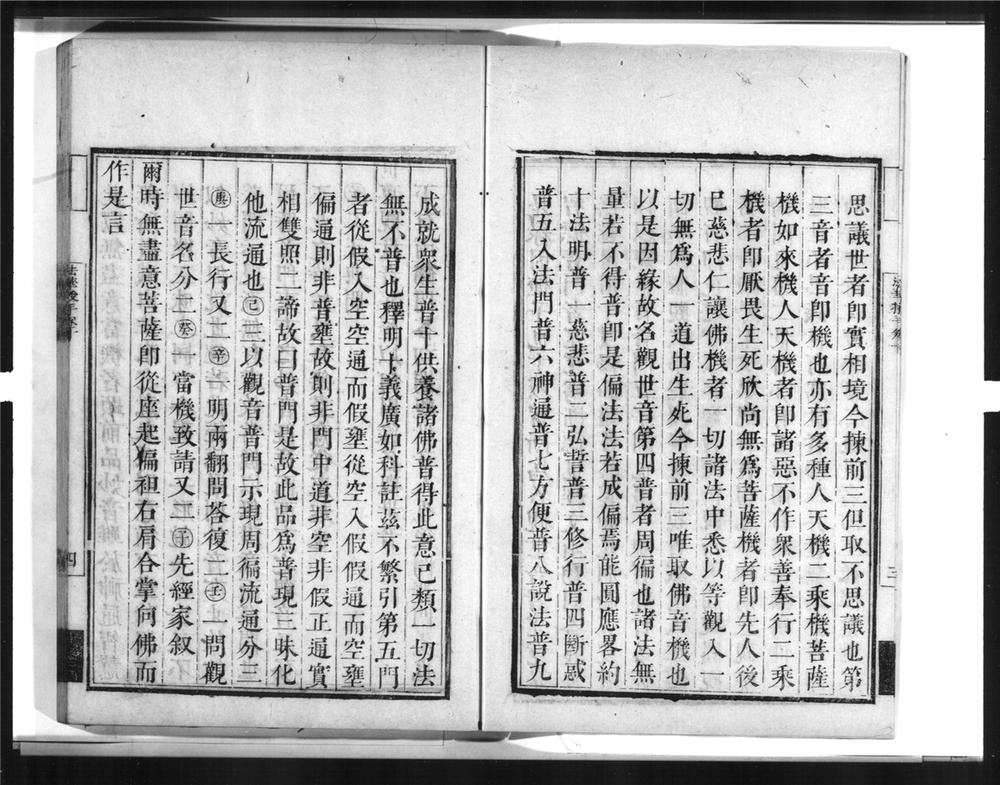 思議世者卽實相境今揀前三但取不思議也第
三音者音卽機也亦有多種人天機二乘機菩薩
機如來機人天機者卽諸惡不作衆善奉行二乘
機者卽厭畏生死欣尚無爲菩薩機者卽先人後
已慈悲仁讓佛機者一切諸法中悉以等觀入一
切無爲人一道出生死今揀前三唯取佛音機也
以是因緣故名觀世音第四普者周徧也諸法無
量若不得普卽是偏法法若成偏焉能圓應畧約
十法明普一慈悲普二弘誓普三修行普四斷惑
普五入法門普六神通普七方便普八說法普九
三
成就衆生普十供養諸佛普得此意已類一切法
無不普也釋明十義廣如科註茲不繁引第五門
者從假入空空通而假壅從空入假假通而空壅
偏通則非普壅故則非門中道非空非假正通實
相雙照二諦故曰普門是故此品爲普現三昧化
他流通也㊁二以觀音普門示現周徧流通分三
庚一長行又二辛一明兩翻問荅復二壬一問觀
世音名分二癸一當機致請又二子先經家叙
爾時無盡意菩薩卽從座起偏袒右肩合掌向佛而
作是言
四